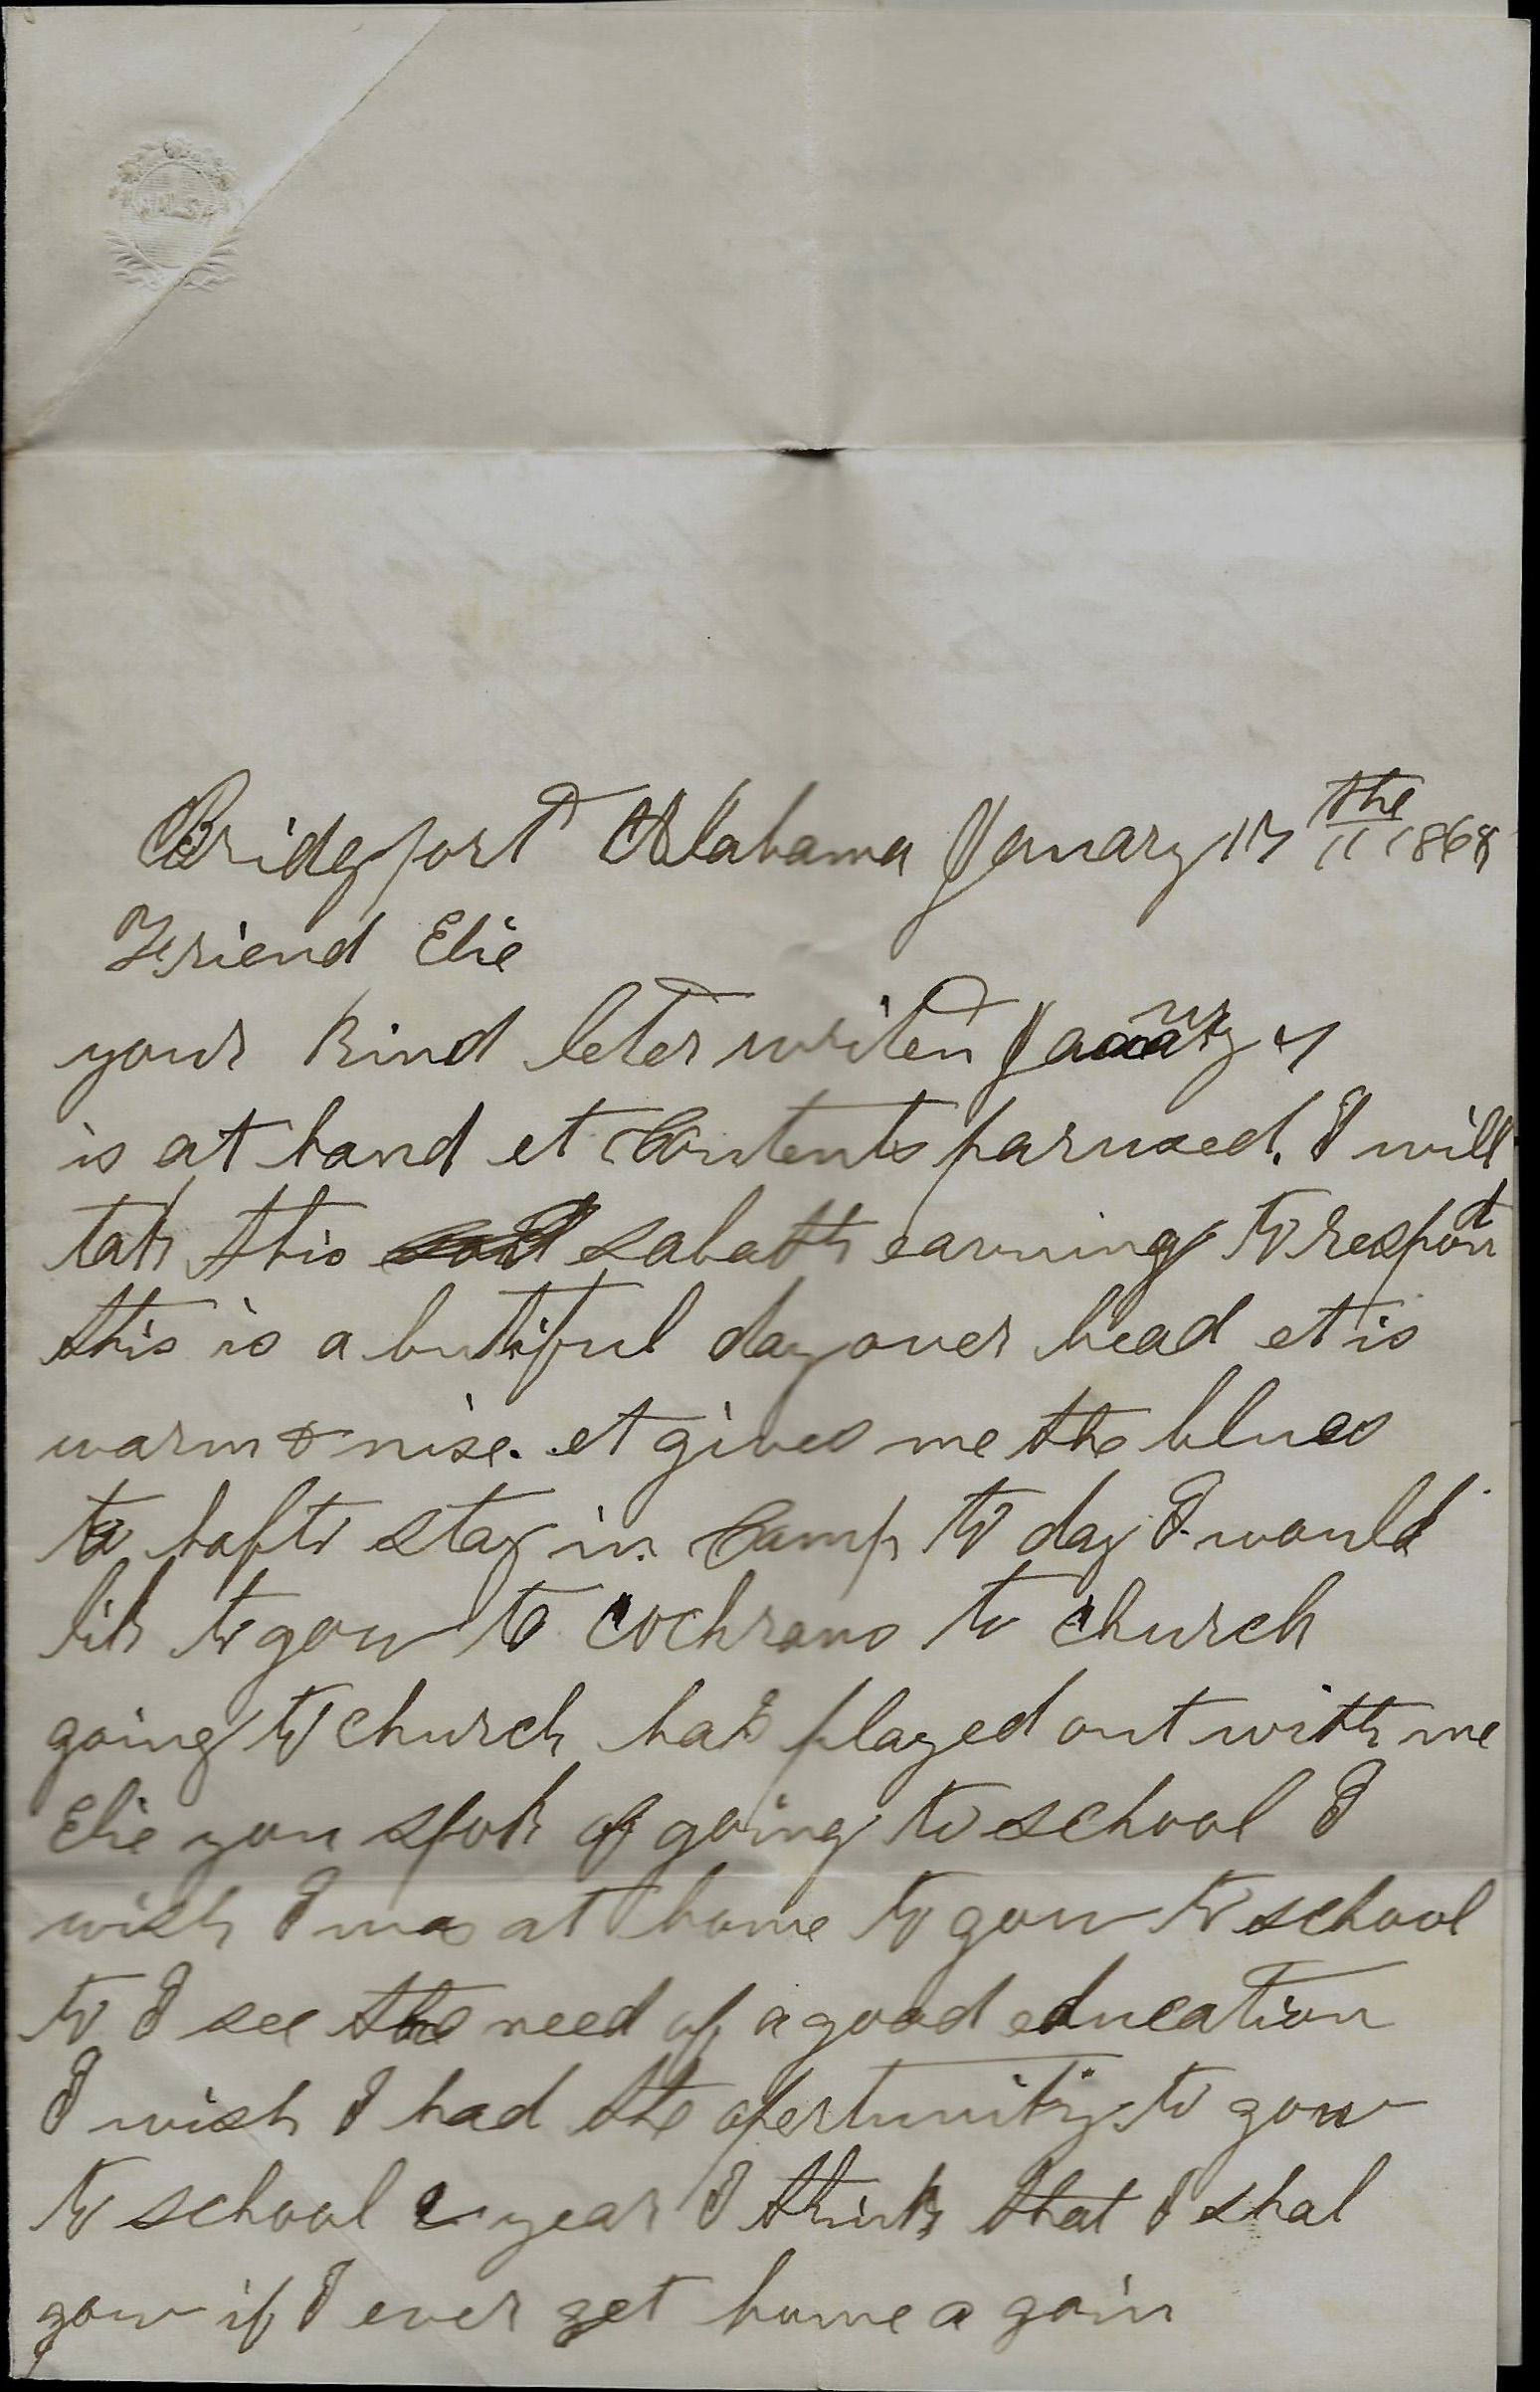 Bridgeport Alabama January 17 the 1868
Friend Elie
your kind leter writen January
is at hand et Contents parused. I will
tak this sabath earning to respond
this is a butiful day over head et is
warm & nise. et gives me the blues
to hafto stay in Camp to day I would
lik to gow to cochrans to church
going to church has played out with me
Elie you spok of going to school I
wish I was at home to gow to school
to I see the need of a good education
I wish I had the opertunity to gow
to school 2 year I think that I shal
gow if I ever get home a gain